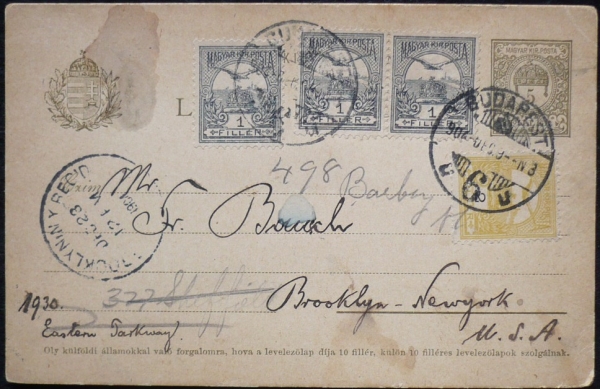 MAGYAR·KIR·POSTA
1
FILLÉR
MAGYAR·KIR·POSTA
1
FILLÉR
MAGYAR·KIR·POSTA
1
FILLÉR
MAGYAR·KIR·POSTA
5
BUDAPEST
L
498 Barbey
Mr.
Fr. Bauch
BROOKLYN, N.Y. REC'D.
23
Brooklyn - Newyork
U. S. A.
1930.
Eastern Parkway
Oly külföldi államokkal való forgalomra, hova a levelezőlap díja 10 fillér, külön 10 filléres levelezőlapok szolgálnak.